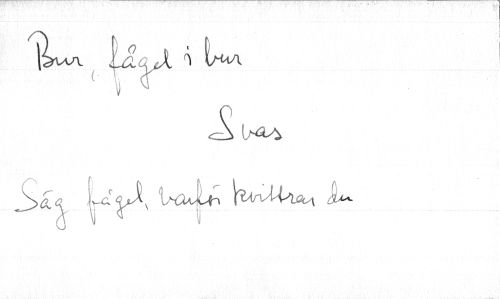 Bur, fågel i bur
Svas
Säg fågel, varför kvittrar du